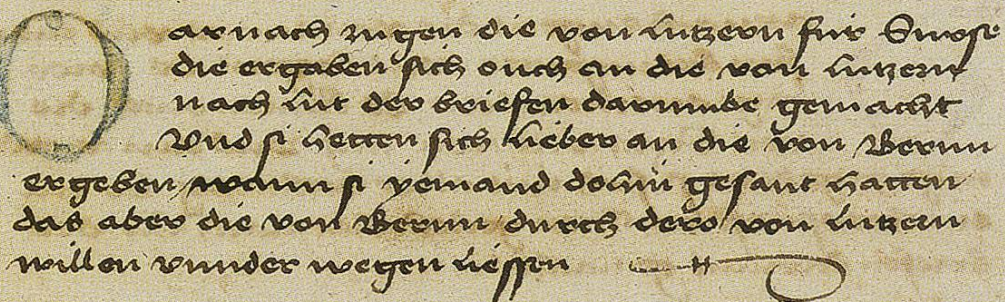 Darnach zugen die von lutzern fur Surse
die ergaben sich ouch an die von lutzern
nach lut der briefen darumbe gemacht
Und si hetten sich lieber an die von Bernn
ergeben wann si yemand dohin gesant hatten
das aber die von Bernn durch dero von lutzern
willen vnnder wegen liessen